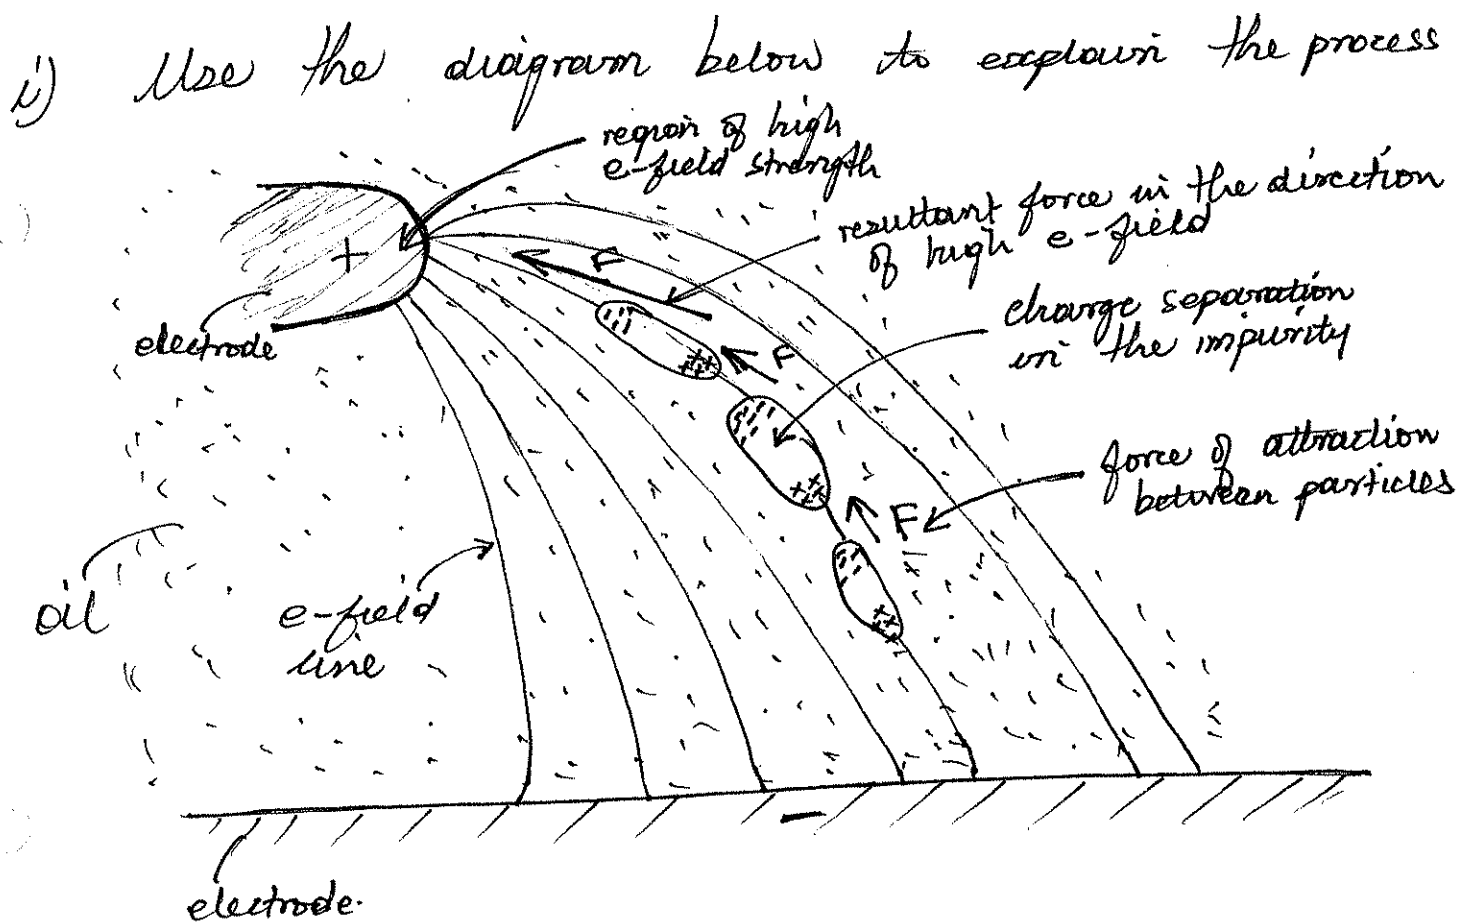 i) Use the diagram below to explain the process
region of high
e-field strength
resultant force in the direction
of high e-field
F
+
electrode
charge separation
in the impurity
F
force of attraction
between particles
F
oil
e-field
line
-
electrode.